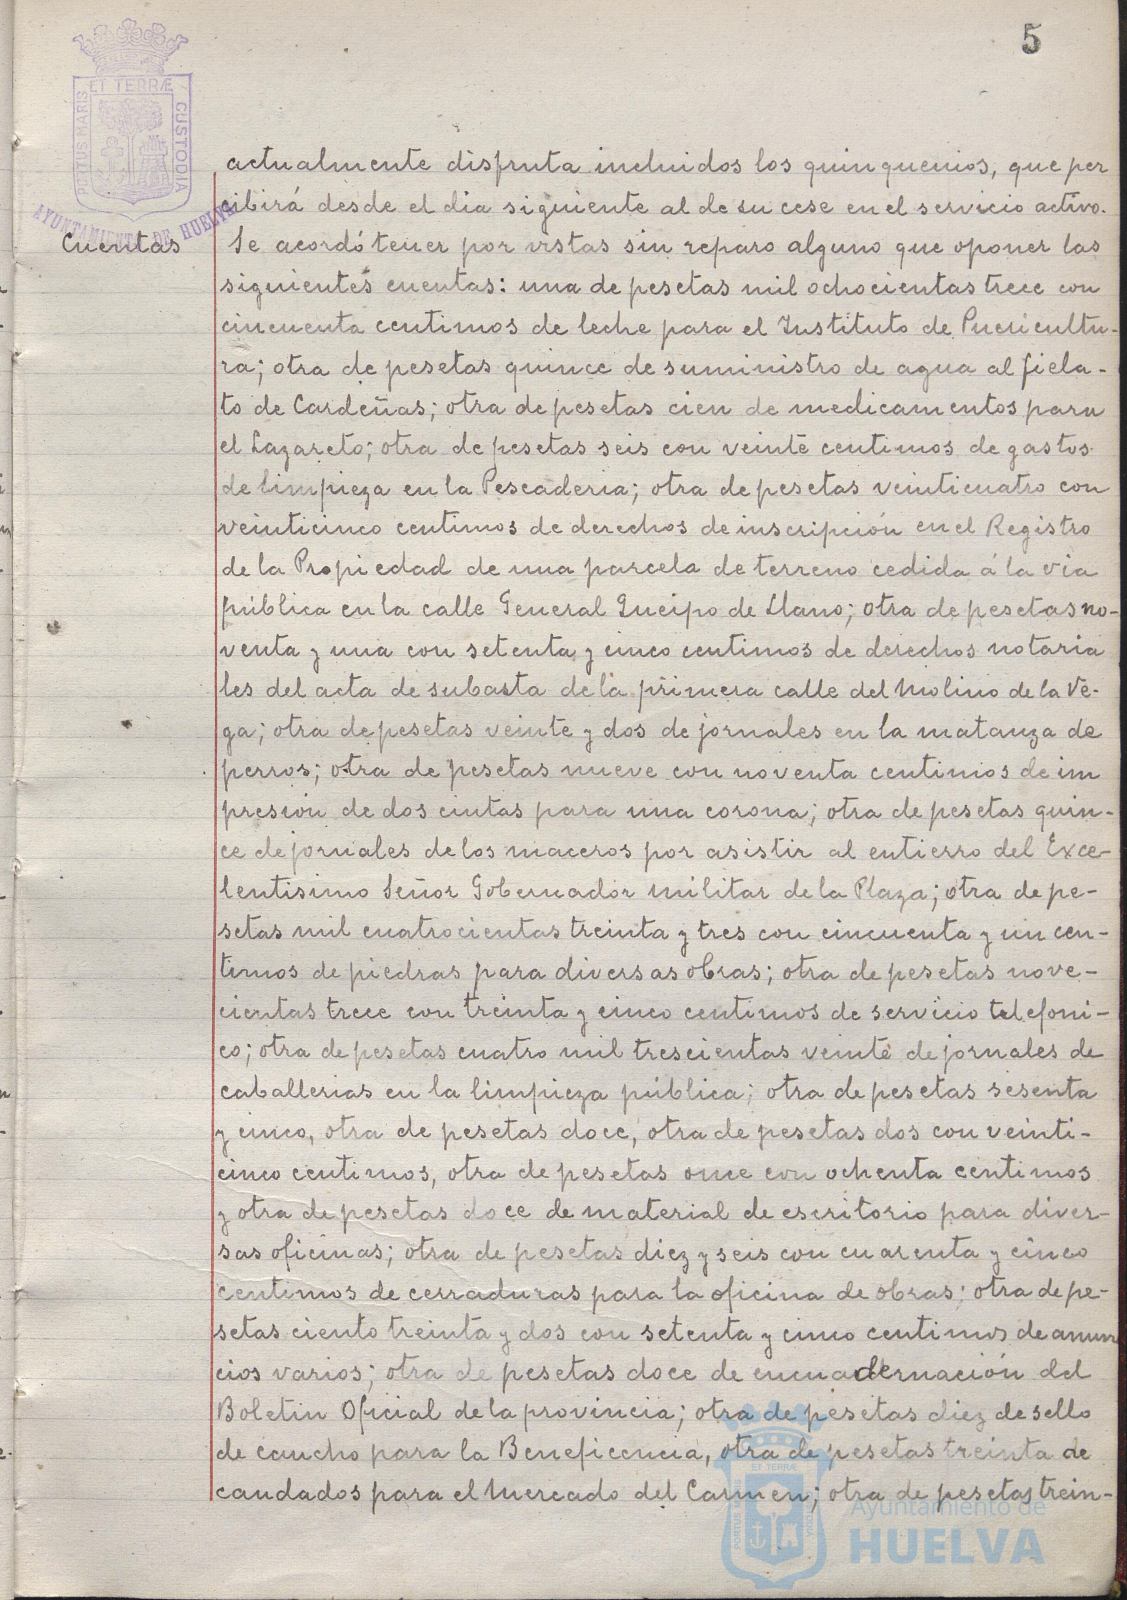 5
PORTUS MARIS ET TERRÆ CUSTODIA
AYUNTAMIENTO DE HUELVA
actualmente disfruta incluidos los quinquenios, que per
cibirá desde el dia siguiente al de su cese en el servicio activo.
Cuentas
Se acordó tener por vistas sin reparo alguno que oponer las
siguientes cuentas: una de pesetas mil ochocientas trece con
cincuenta centimos de leche para el Instituto de Puericultu-
ra; otra de pesetas quince de suministro de agua al fiela-
to de Cardeñas; otra de pesetas cien de medicamentos para
el Lazareto; otra de pesetas seis con veinte centimos de gastos
de limpieza en la Pescaderia; otra de pesetas veinticuatro con
veinticinco centimos de derechos de inscripción en el Registro
de la Propiedad de una parcela de terreno cedida á la via
pública en la calle General Queipo de Llano; otra de pesetas no-
venta y una con setenta y cinco centimos de derechos notaria
les del acta de subasta de la primera calle del Molino de la Ve-
ga; otra de pesetas veinte y dos de jornales en la matanza de
perros; otra de pesetas nueve con noventa centimos de im
presión de dos cintas para una corona; otra de pesetas quin-
ce de jornales de los maceros por asistir al entierro del Exce-
lentisimo Señor Gobernador militar de la Plaza; otra de pe-
setas mil cuatrocientas treinta y tres con cincuenta y un cen-
timos de piedras para diversas obras; otra de pesetas nove-
cientas trece con treinta y cinco centimos de servicio telefoni-
co; otra de pesetas cuatro mil trescientas veinte de jornales de
caballerias en la limpieza pública; otra de pesetas sesenta
y cinco, otra de pesetas doce, otra de pesetas dos con veinti-
cinco centimos, otra de pesetas once con ochenta centimos
y otra de pesetas doce de material de escritorio para diver-
sas oficinas; otra de pesetas diez y seis con cuarenta y cinco
centimos de cerraduras para la oficina de obras; otra de pe-
setas ciento treinta y dos con setenta y cinco centimos de anun
cios varios; otra de pesetas doce de encuadernación del
Boletin Oficial de la provincia; otra de pesetas diez de sello
de caucho para la Beneficencia, otra de pesetas treinta de
candados para el Mercado del Carmen; otra de pesetas trein-
Ayuntamiento de
HUELVA